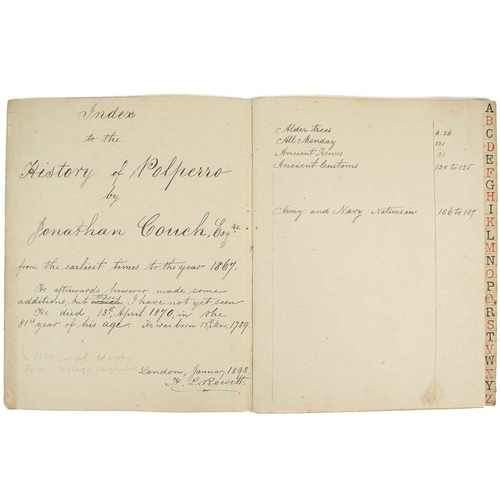 Index
to the
History of Polperro
by
Jonathan Couch, Esqre
from the earliest times to the year 1867.
He afterwards however made some
additions, but these I have not yet seen
He died 13th April 1870 in the
81st year of his age. He was born 15th Mar, 1789.
London, January 1898
H. L. Rowett.
Alder trees 6. 26
All. Monday 121
Ancient Houses 31
Ancient Customs 120 to 125
Army and Navy Natives in 106 to 107
A
B
C
D
E
F
G
H
I
K
L
M
N
O
P
Q
R
S
T
V
W
X
Y
Z